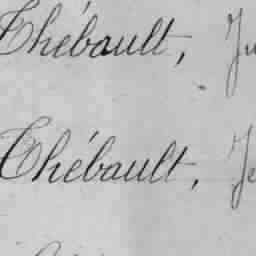 Thébault, Ju
Thébault, Je